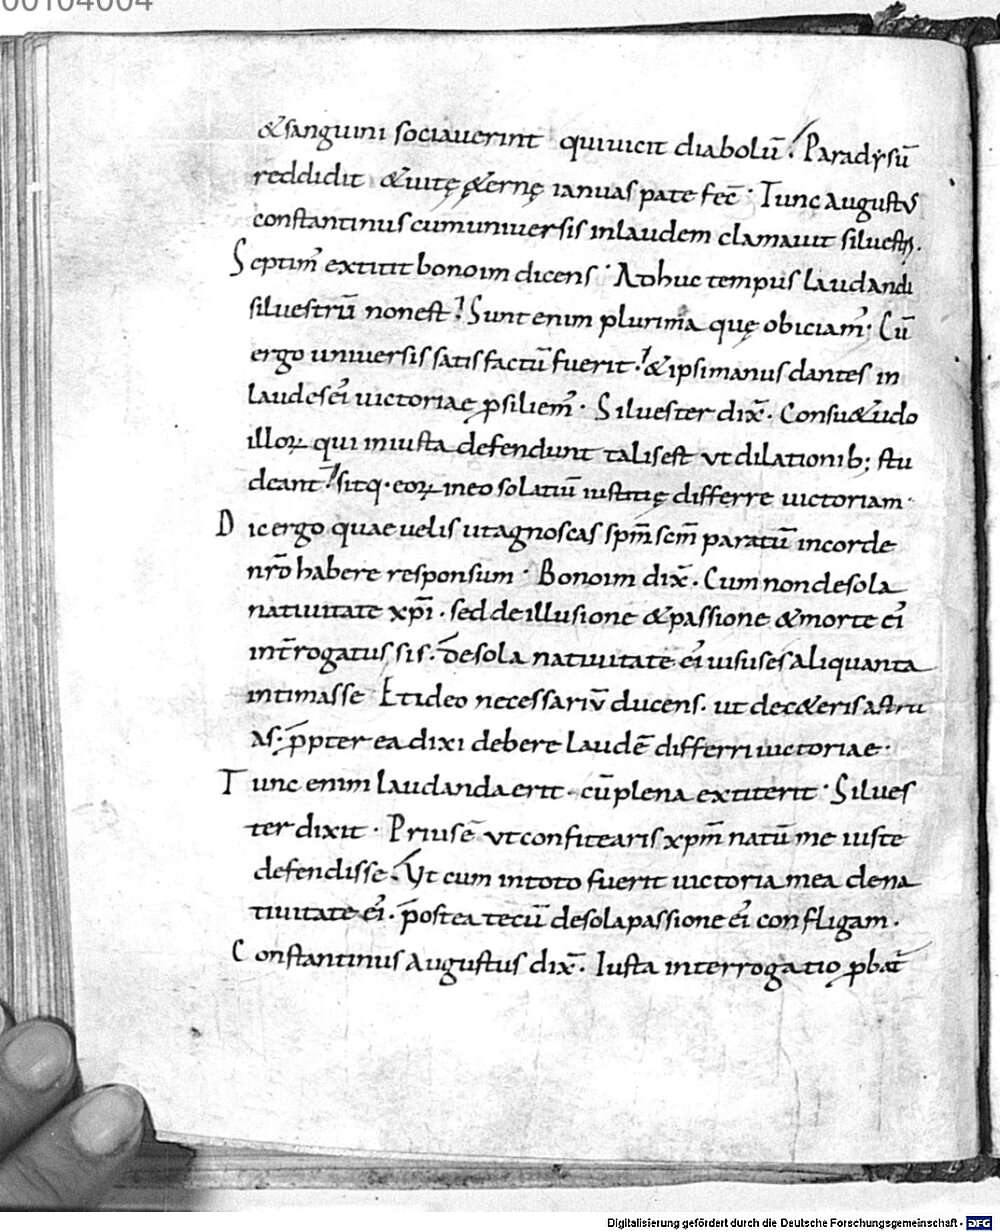 00104004
&sanguini sociauerint quiuicit diabolū. Paradysū
reddidit &uitę &ernę ianuas pate fec̄. Tunc Augustus
constantinus cumuniuersis inlaudem clamauit siluestri.
Septim' extitit bonoim dicens. Adhuc tempus laudandi
siluestrū nonest. Sunt enim plurima quę obiciam'. Cū
ergo uniuersis satis factū fuerit. &ipsi manus dantes in
laudes ei' uictoriae ꝓsiliem'. Siluester dix̄. Consu&udo
illoꝝ qui iniusta defendunt talis est ut dilationib; stu
deant. sitq. eoꝝ ineo solatiū iustitię differre uictoriam.
Dic ergo quae uelis ut agnoscas sp̄m sc̄m paratū in corde
nr̄o habere responsum. Bonoim dix̄. Cum non de sola
natiuitate xp̄i. sed de illusione &passione &morte ei'
int̄rogatus sis. de sola natiuitate ei' uisus es aliquanta
intimasse Et ideo necessariū ducens. ut de c&eris astru
as. p̄pter ea dixi debere laudē differri uictoriae.
Tunc enim laudanda erit. cū plena extiterit. Silues
ter dixit. Prius ē ut confitearis xp̄m natū me iuste
defendisse. Ut cum in toto fuerit uictoria mea de na
tiuitate ei'. p̄ostea tecū de sola passione ei' confligam.
Constantinus augustus dix̄. Iusta interrogatio ꝓbat̄
Digitalisierung gefördert durch die Deutsche Forschungsgemeinschaft - DFG